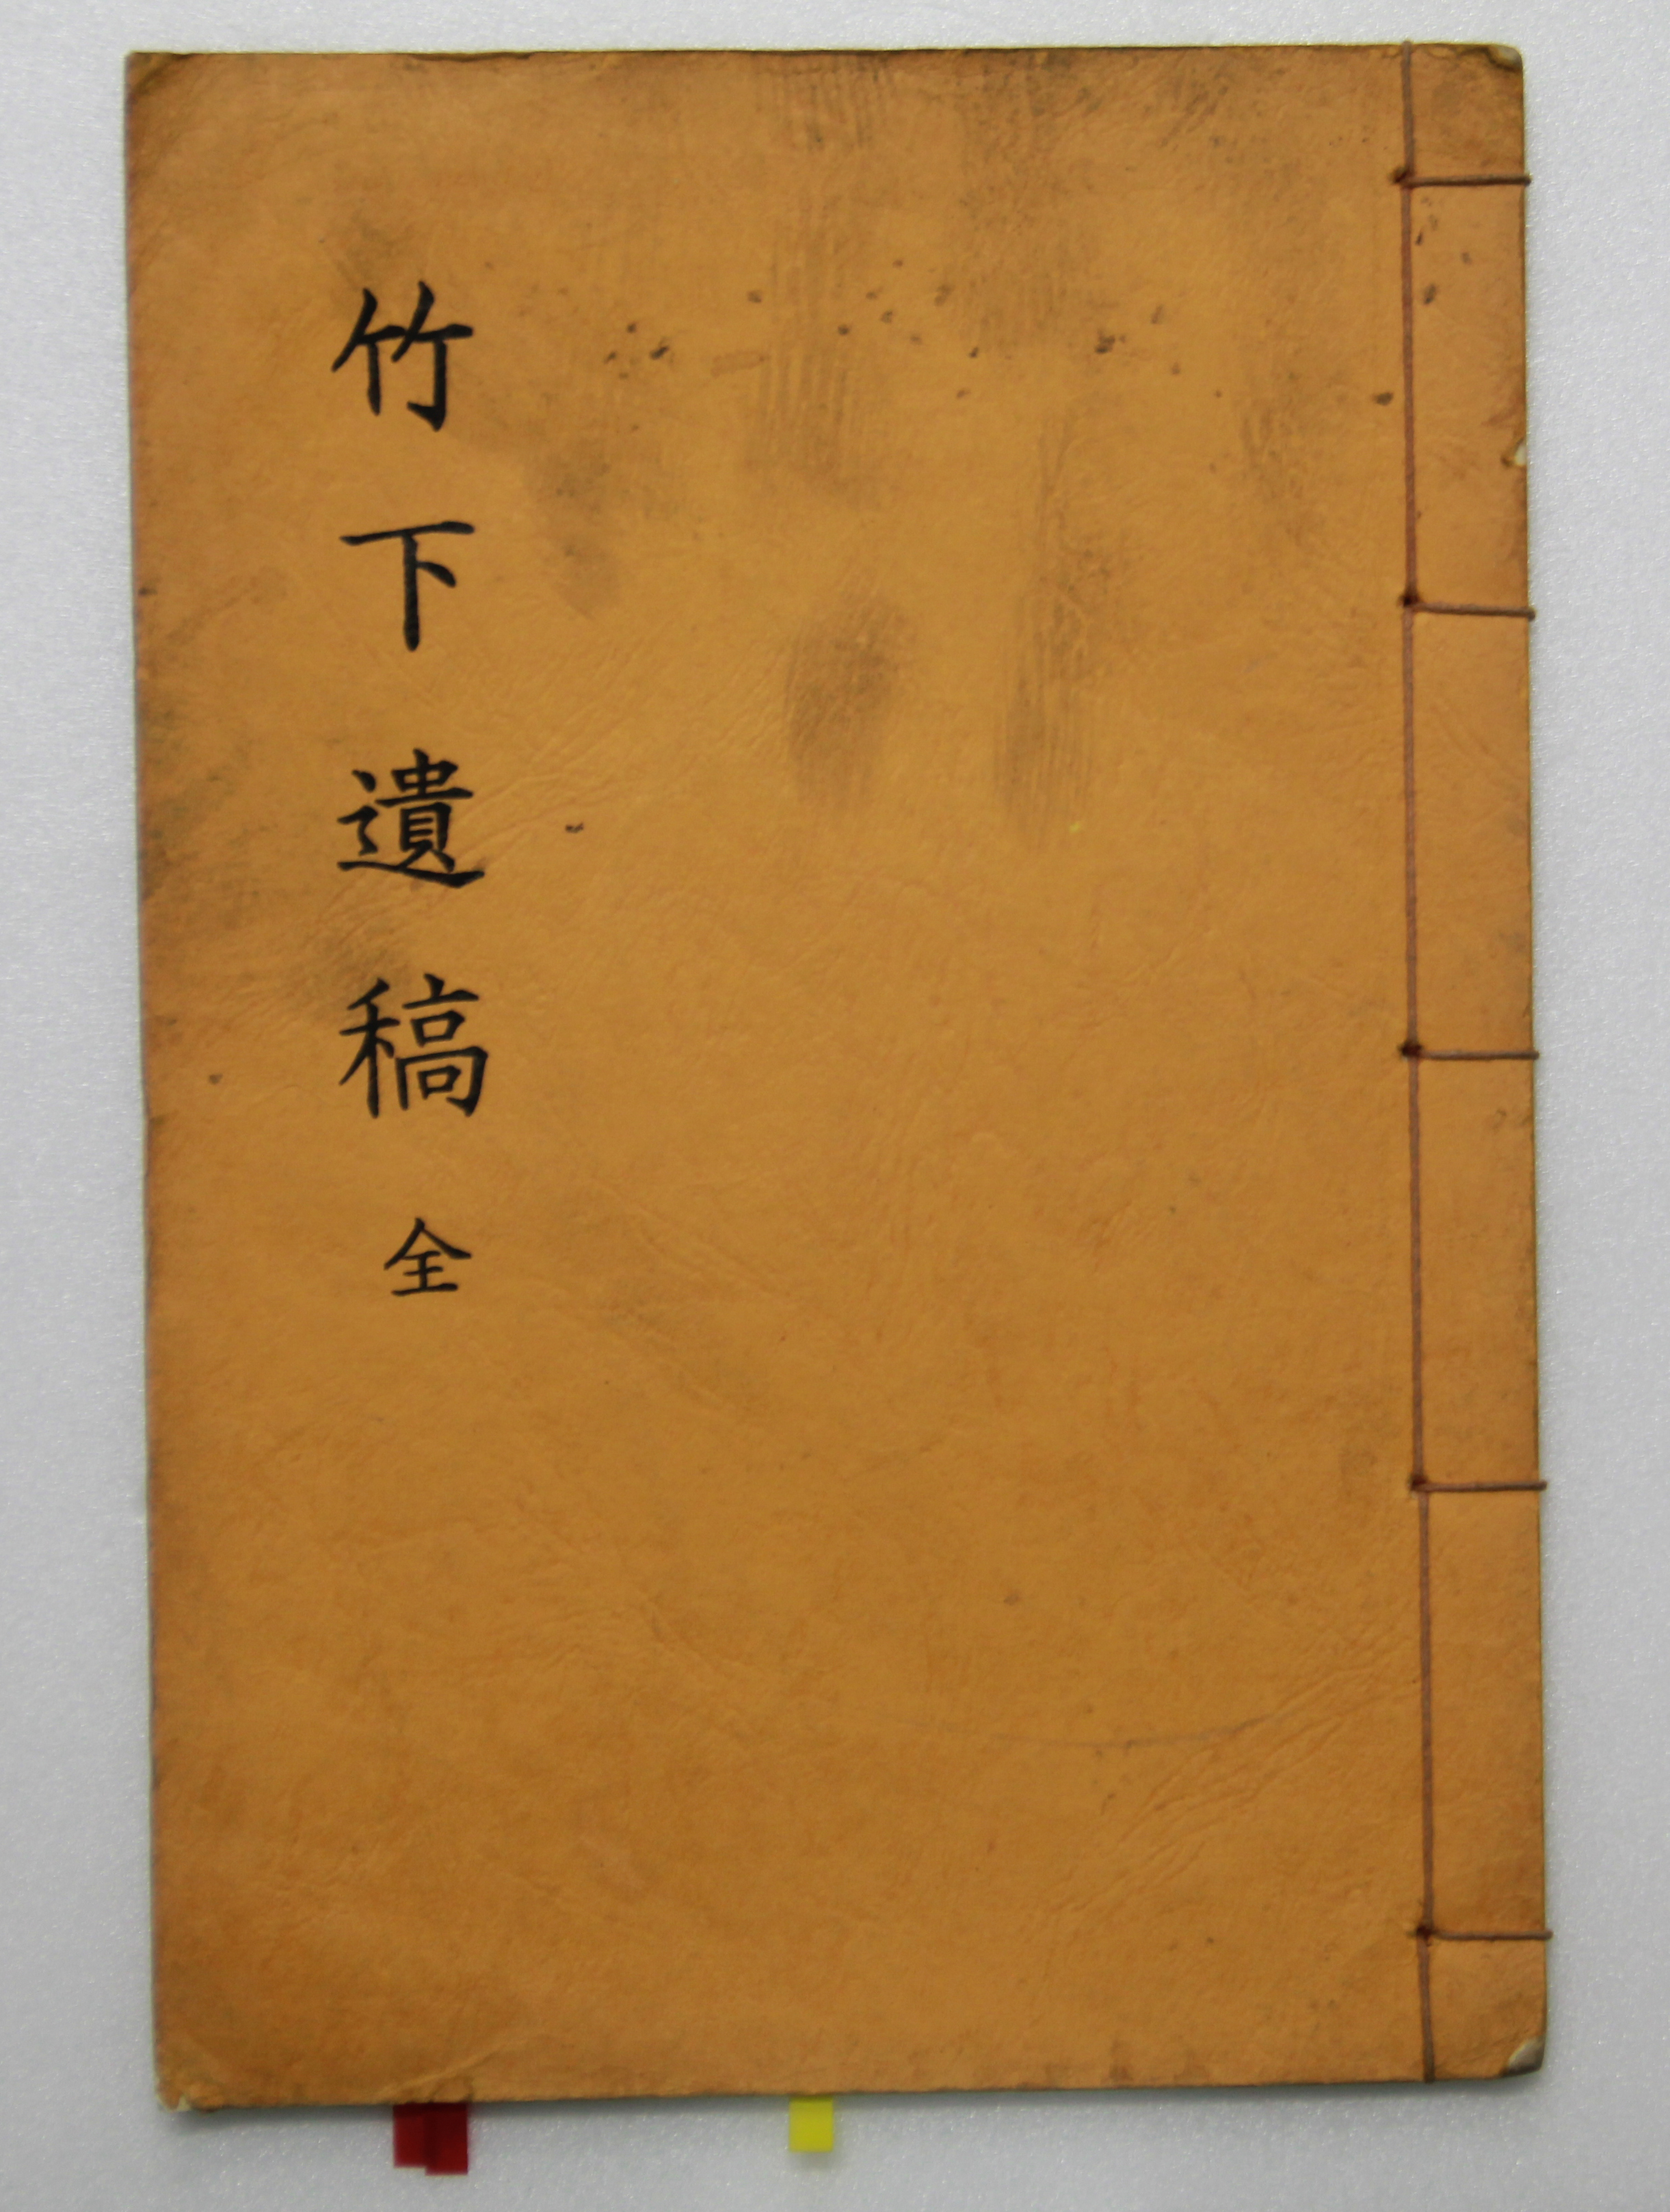 竹下遺稿 全